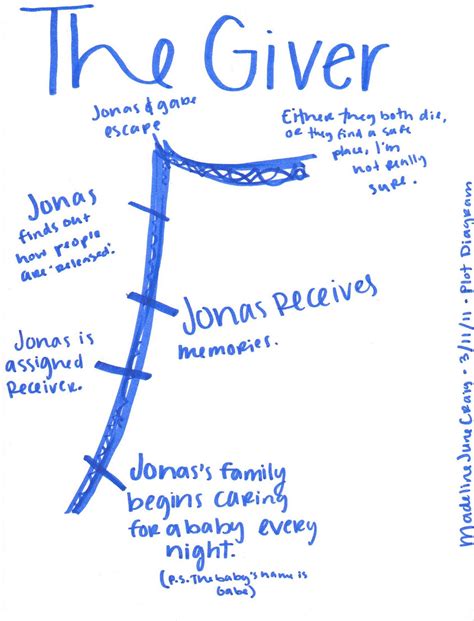 The Giver
Jonas & gabe
escape
Either they both die,
or they find a safe
place, I'm
not really
sure.
Jonas
finds out
how people
are 'released'.
Jonas Receives
memories.
Jonas is
assigned
Receiver.
Jonas's family
begins caring
for a baby every
night.
(p.s. The baby's name is
Gabe)
Madeline June Craig • 3/11/11 • Plot Diagram